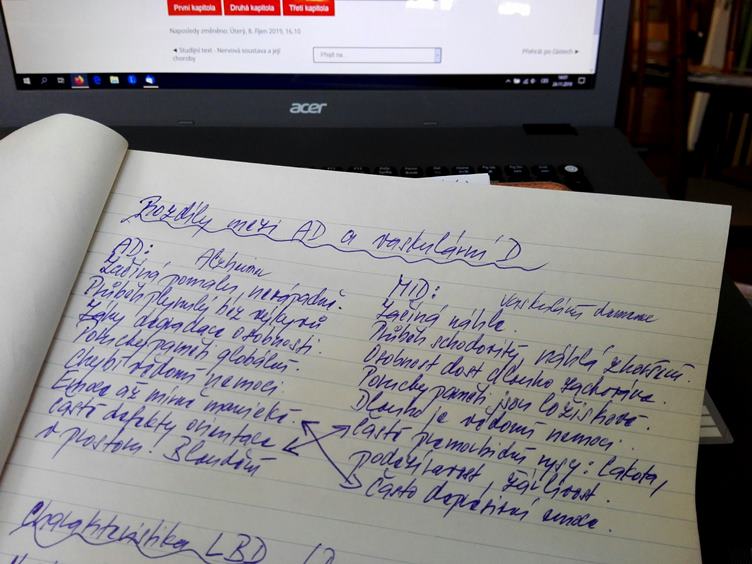 První kapitola Druhá kapitola Třetí kapitola
Naposledy změněno: Úterý, 8. říjen 2019, 16.10
◄ Studijní text - Nervová soustava a její
choroby
Přejít na...
Přehrát po částech ►
acer
Rozdíly mezi AD a vaskulární D
AD: Alzheim
Začíná pomalu, nenápadně.
Průběh plynulý bez výkyvů
degradace osobnosti.
Poruchy paměti globální.
Chybí vědomí nemoci.
Emoce až mírně manické.
často defekty orientace
v prostoru. Bloudění
MID: vaskulární demence
Začíná náhle.
Průběh schodovitý, náhlá zhoršení.
Osobnost dost dlouho zachována.
Poruchy paměti jsou ložiskové.
Dlouho je vědomí nemoci.
často premorbidní rysy: lakota,
podezíravost, žárlivost.
často depresivní emoce.
Charakteristika LBD